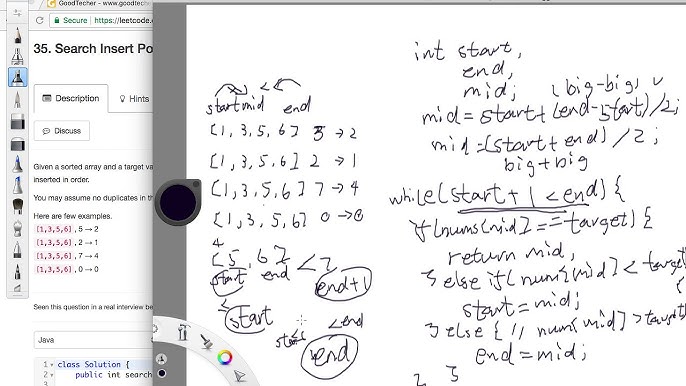 GoodTecher - www.goodtecher
Secure | https://leetcode.c
35. Search Insert Po
Description
Hints
Discuss
Given a sorted array and a target va
inserted in order.
You may assume no duplicates in th
Here are few examples.
[1,3,5,6], 5 → 2
[1,3,5,6], 2 → 1
[1,3,5,6], 7 → 4
[1,3,5,6], 0 → 0
Seen this question in a real interview be
Java
1 class Solution {
2 public int search
3
<
start mid end
[1, 3, 5, 6] 5 → 2
[1, 3, 5, 6] 2 → 1
[1, 3, 5, 6] 7 → 4
[1, 3, 5, 6] 0 → 0
4
[5, 6] < 7
start end end+1
<
start
<end
start
end
int start,
end,
mid;
(big-big)
mid = start + (end - start) / 2;
mid = (start + end) / 2;
big + big
while(start + 1 < end) {
if(nums[mid] == target) {
return mid,
} else if(nums[mid] < target
{
start = mid;
} else { // nums[mid] > target
end = mid;
}